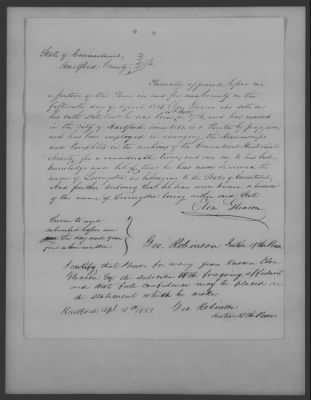 State of Connecticut,
Hartford County
Personally appeared before me
a Justice of the Peace in and for said County on the
fifteenth day of April, 1851, Elon Gleason who doth on
his oath state that he was born in 1786, and has resided
in the City of Hartford since is a Printer by profession
and has been employed in arranging the Manuscripts
and Pamphlets in the archives of the Connecticut Historical
Society for a considerable time, and can on his best
knowledge and belief that he has never learned the
name of Livingston as belonging to the State of Connecticut,
And further deposeth that he has never known a man
of the name of Livingston being within said State.
Elon Gleason
Sworn to and
subscribed before me
the day and year
first above written
Geo. Robinson Justice of the Peace
I certify that I have for many years known Elon
Gleason Esq the subscriber to the foregoing affidavit
and that full confidence may be placed in
the statement which he makes.
Hartford Apl. 15th 1851 Geo. Robinson
Justice of the Peace